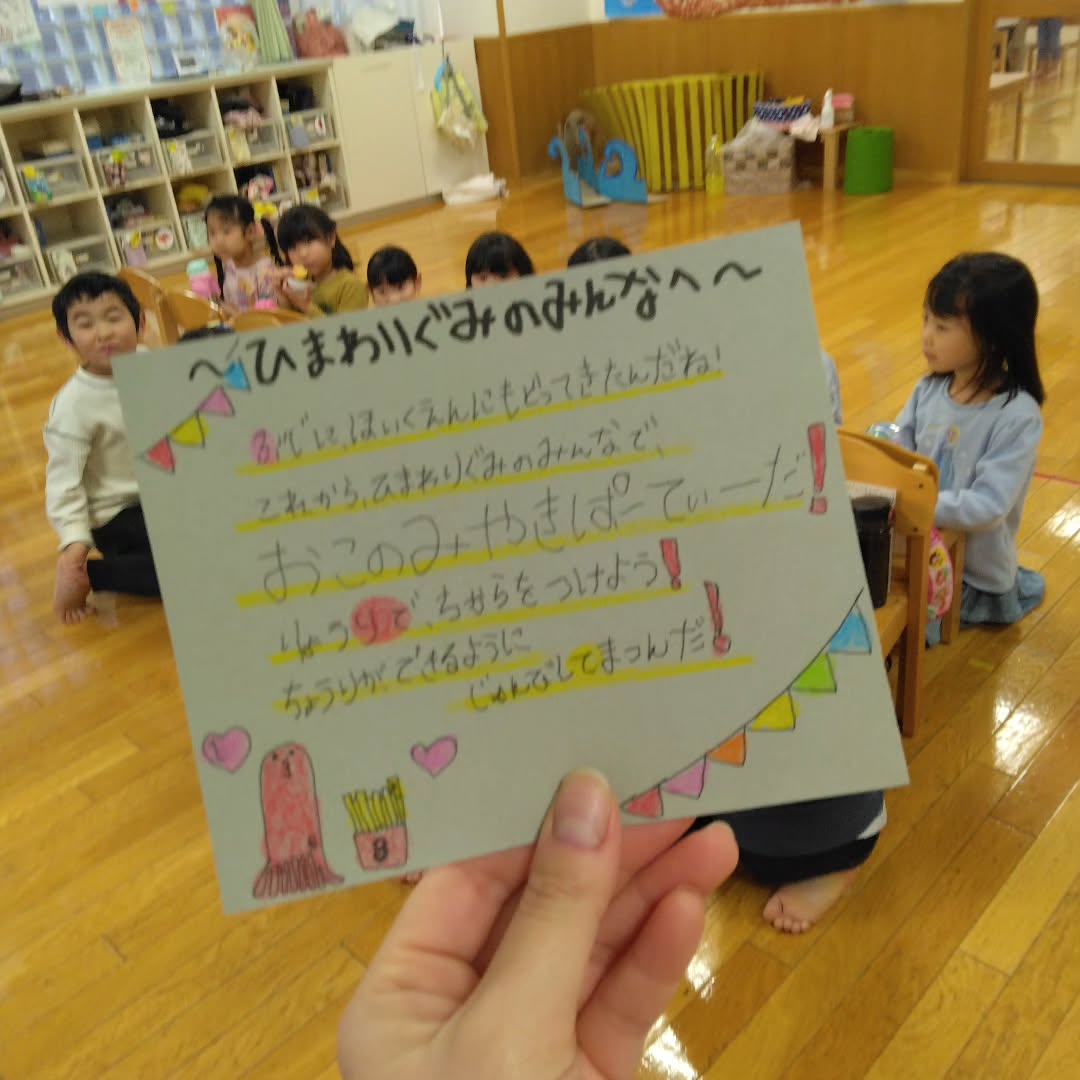 〜ひまわりぐみのみんなへ〜
ぶじに、ほいくえんにもどってきたんだね!
これから、ひまわりぐみのみんなで、
おこのみやきぱーてぃーだ!
りょう で、ちからをつけよう!
ちょうりができるように
じゅんびしてまつんだ!
8